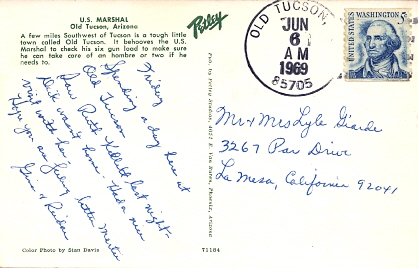 U.S. MARSHAL
Old Tucson, Arizona
A few miles Southwest of Tucson is a tough little
town called Old Tucson. It behooves the U.S.
Marshal to check his six gun load to make sure
he can take care of an hombre or two if he
needs to.
Petley
OLD TUCSON,
JUN
6
AM
1969
85705
UNITED STATES
WASHINGTON 5c
Friday
Spending a day here at
Old Tucson
Saw Ruth last night-
Dick wasn't home. Had a nice
visit with her.
Hope you are feeling better
Mr & Mrs Lyle
3267 Par Drive
La Mesa, California 92041
Color Photo by Stan Davis
71184